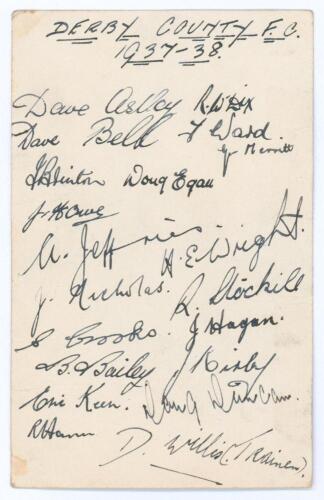 DERBY COUNTY F.C.
1937-38.
Dave Astley R. W Dix
Dave Bell T Ward.
J. Merritt
J B Hinton Doug Egan
J. Howe
A. Jeffries H. E. Wright.
J. Nicholas. R. Stockill
S Crooks. J Hagan.
L. Bailey J Kirby
Eric Keen. Doug Duncan.
R Hann
D. Willis (Trainer).